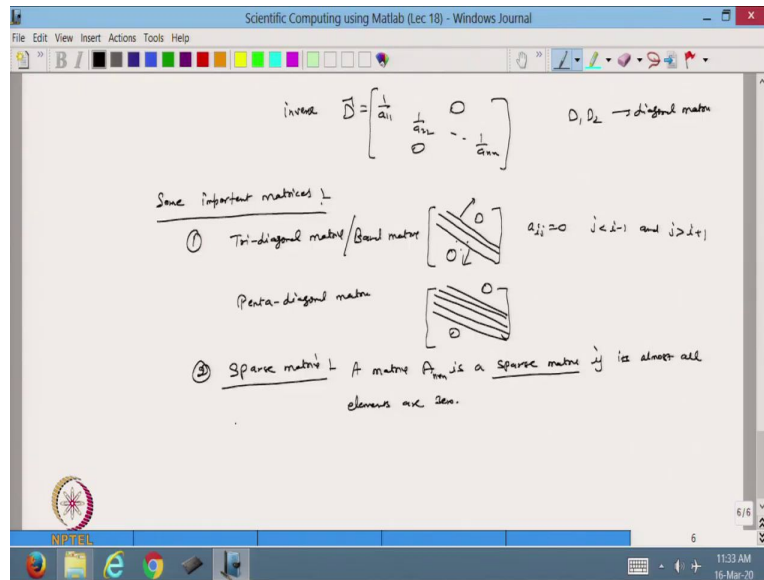 Scientific Computing using Matlab (Lec 18) - Windows Journal
File Edit View Insert Actions Tools Help
B I
inverse D = [1/a11 0
1/a22
0 .. 1/ann] D1, D2 → diagonal matrix
Some important matrices :
① Tri-diagonal matrix/Band matrix [0 0] aij=0 j<i-1 and j>i+1
Penta-diagonal matrix [0 0]
② Sparse matrix : A matrix Anxn is a sparse matrix if its almost all
elements are zero.
NPTEL
6/6
6
11:33 AM
16-Mar-20